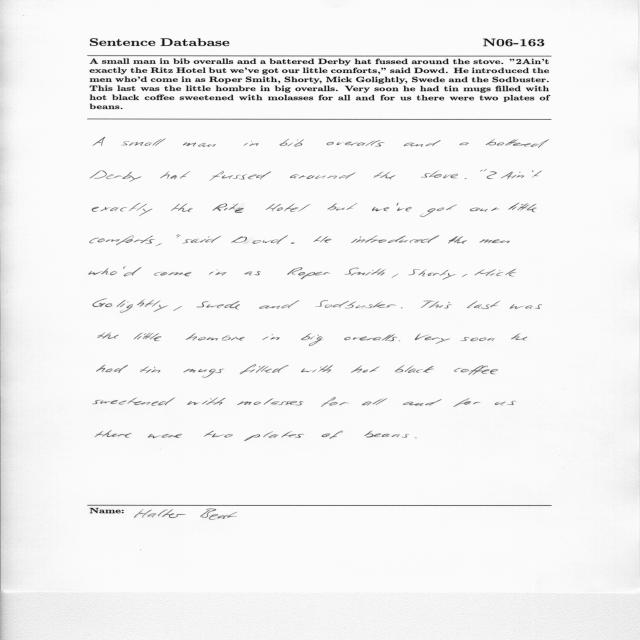 Sentence Database N06-163
A small man in bib overalls and a battered Derby hat fussed around the stove. "2Ain't
exactly the Ritz Hotel but we've got our little comforts," said Dowd. He introduced the
men who'd come in as Roper Smith, Shorty, Mick Golightly, Swede and the Sodbuster.
This last was the little hombre in big overalls. Very soon he had tin mugs filled with
hot black coffee sweetened with molasses for all and for us there were two plates of
beans.
A small man in bib overalls and a battered
Derby hat fussed around the stove. "2 Ain't
exactly the Ritz Hotel but we've got our little
comforts," said Dowd. He introduced the men
who'd come in as Roper Smith, Shorty, Mick
Golightly, Swede and Sodbuster. This last was
the little hombre in big overalls. Very soon he
had tin mugs filled with hot black coffee
sweetened with molasses for all and for us
there were two plates of beans.
Name: Halter Beat